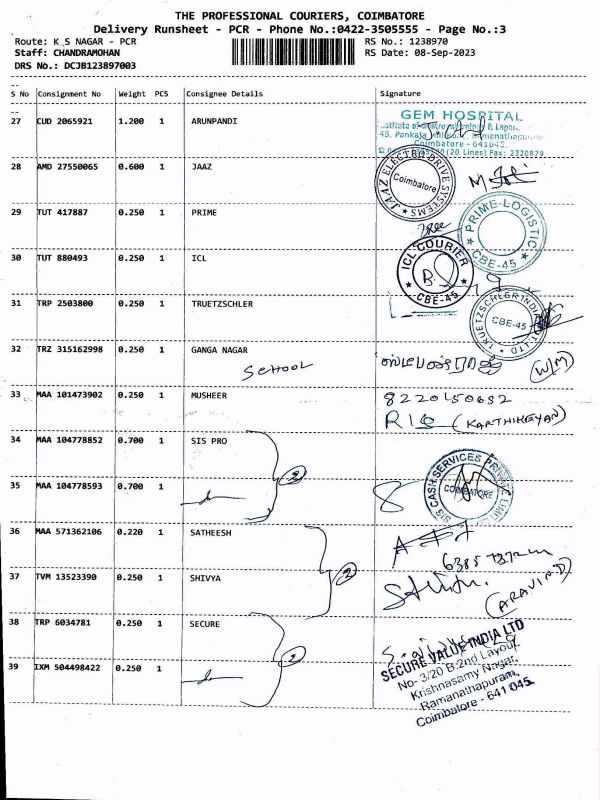 THE PROFESSIONAL COURIERS, COIMBATORE
Delivery Runsheet - PCR - Phone No.:0422-3505555 - Page No.:3
Route: K S NAGAR - PCR RS No.: 1238970
Staff: CHANDRAMOHAN RS Date: 08-Sep-2023
DRS No.: DCJB123897003
S No Consignment No Weight PCS Consignee Details Signature
27 CUD 2065921 1.200 1 ARUNPANDI
GEM HOSPITAL
45, Pankaja Ramanathapuram
Coimbatore - 641045.
(20 Lines) Fax: 2320879
28 AMD 27550065 0.600 1 JAAZ
JAAZ ELECTRO DRIVE SYSTEMS
Coimbatore
29 TUT 417887 0.250 1 PRIME
PRIME-LOGISTIC
CBE-45
30 TUT 880493 0.250 1 ICL
ICL COURIER
CBE-45
31 TRP 2503800 0.250 1 TRUETZSCHLER
TRUETZSCHLER INDIA PVT. LTD
CBE-45
32 TRZ 315162998 0.250 1 GANGA NAGAR
SCHOOL
(W/M)
33 MAA 101473902 0.250 1 MUSHEER
8220450632
R10 (KARTHIKEYAN)
34 MAA 104778852 0.700 1 SIS PRO
SIS CASH SERVICES PRIVATE LIMITED
COIMBATORE
35 MAA 104778593 0.700 1 do
2
8
36 MAA 571362106 0.220 1 SATHEESH
37 TVM 13523390 0.250 1 SHIVYA
2
(ARAVIND)
38 TRP 6034781 0.250 1 SECURE
SECURE VALUE INDIA LTD
No- 3/20 B-2nd Layout,
Krishnasamy Nagar,
Ramanathapuram,
Coimbatore - 641 045.
39 IXM 504498422 0.250 1 do
2